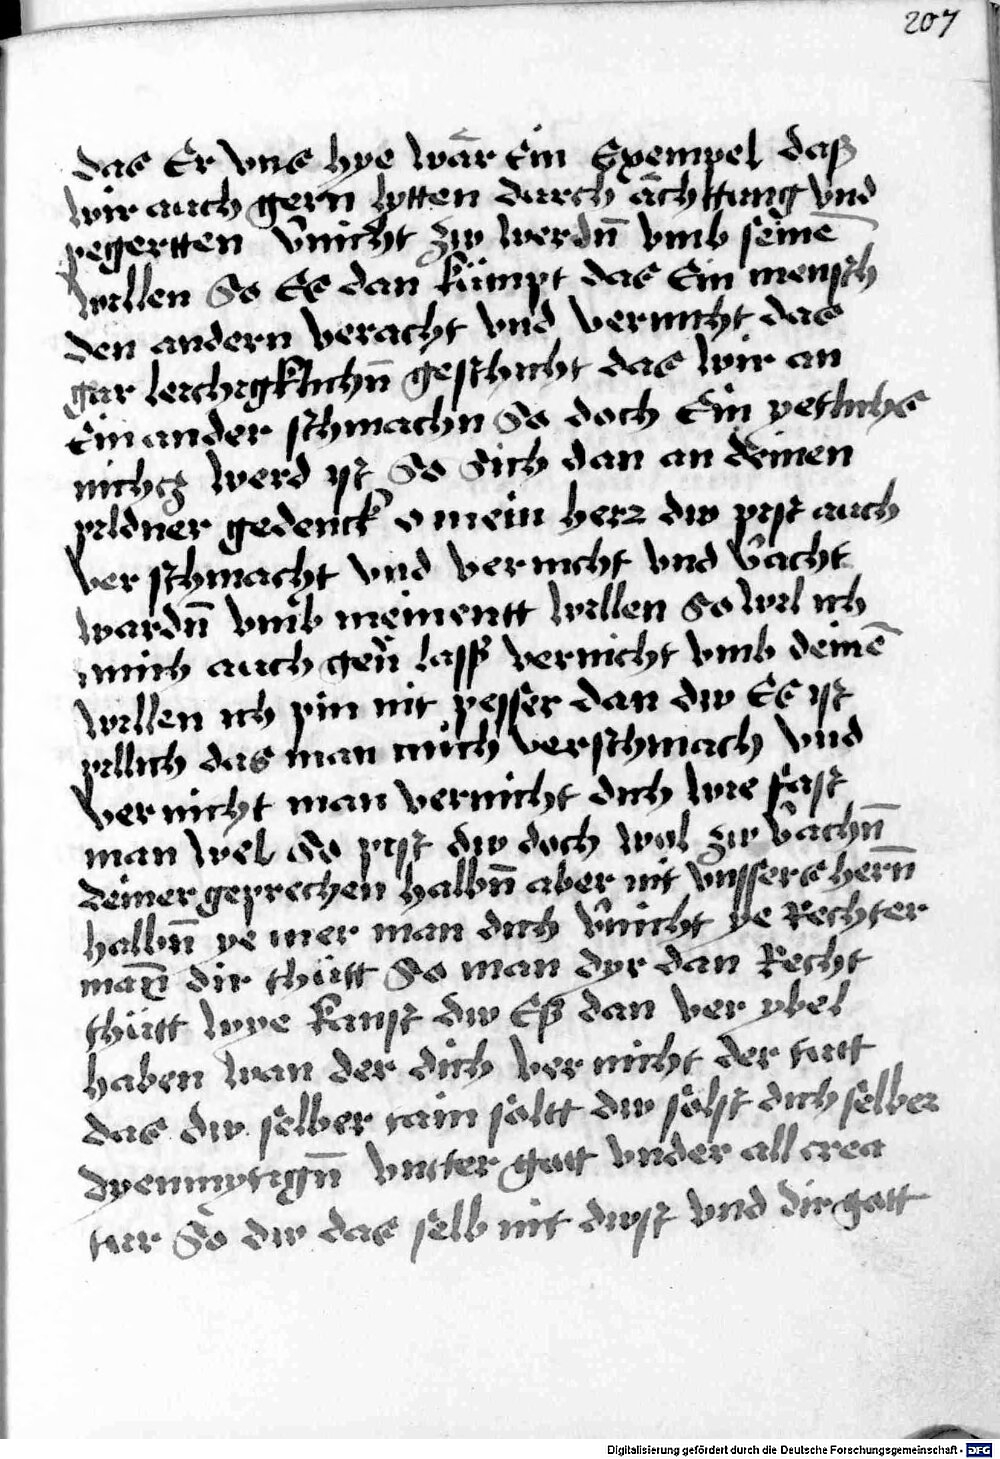 207
das Er vns hye wär Ein Exempel daß
wir auch gern lytten durch ächttung vnd
pegertten v̄nicht zw werdn̄ vmb seinē
willen So Es dan kümpt das Ein mensch
den andern veracht vnd vernicht das
gar leichtgklichn̄ geschicht das wir an
Ein ander schmachn So doch Ein yetlichs
nichcz werd yst So Sich dan an deinen
pildner gedenck o mein herz dw pist auch
ver schmacht vnd vernicht vnd v̄acht
wardn̄ vmb meinentt willen So wil ich
mich auch gern̄ lassß vernicht vmb deinē
willen ich pin nit pesser dan dw Es yst
pillich das man mich verschmach vnd
vernicht man vernicht dich wie fast
man wel So pist dw doch wol zw v̄achn̄
deiner geprechen halbn̄ aber nit vnssers hern̄
halbn̄ ye mer man dich v̄nicht ye Rechter
man dir thütt So man dyr dan Recht
thütt wye kanst dw Eß dan ver ybel
haben wan der dich ver nicht der tutt
das dw selber tain soltt dw sölst dich selber
dyemmytign̄ vntter gott vnder all crea
tur So dw das selb nit dwst vnd dir gott
Digitalisierung gefördert durch die Deutsche Forschungsgemeinschaft - DFG